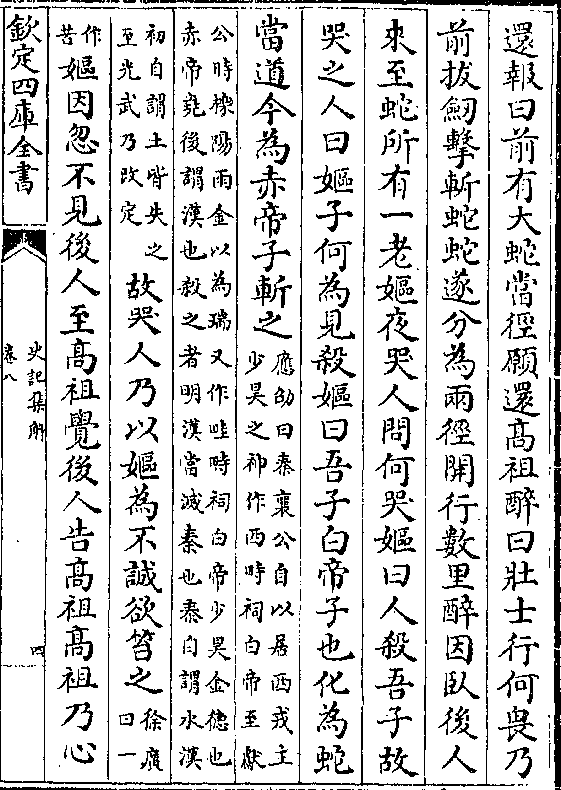 還報曰前有大蛇當徑願還髙祖醉曰壯士行何畏乃
前拔劒擊斬蛇蛇遂分為兩徑開行數里醉因臥後人
來至蛇所有一老嫗夜哭人問何哭嫗曰人殺吾子故
哭之人曰嫗子何為見殺嫗曰吾子白帝子也化為蛇
當道今為赤帝子斬之
應劭曰秦襄公自以居西戎主
少昊之神作西時祠白帝至獻
公時櫟陽雨金以為瑞又作畦時祠白帝少昊金德也
赤帝堯後謂漢也殺之者明漢當滅秦也秦自謂水漢
初自謂土皆失之
至光武乃改定
故哭人乃以嫗為不誠欲笞之
徐廣
曰一
作
苦
嫗因忽不見後人至髙祖覺後人告髙祖髙祖乃心
欽定四庫全書
史記集解
卷八
四